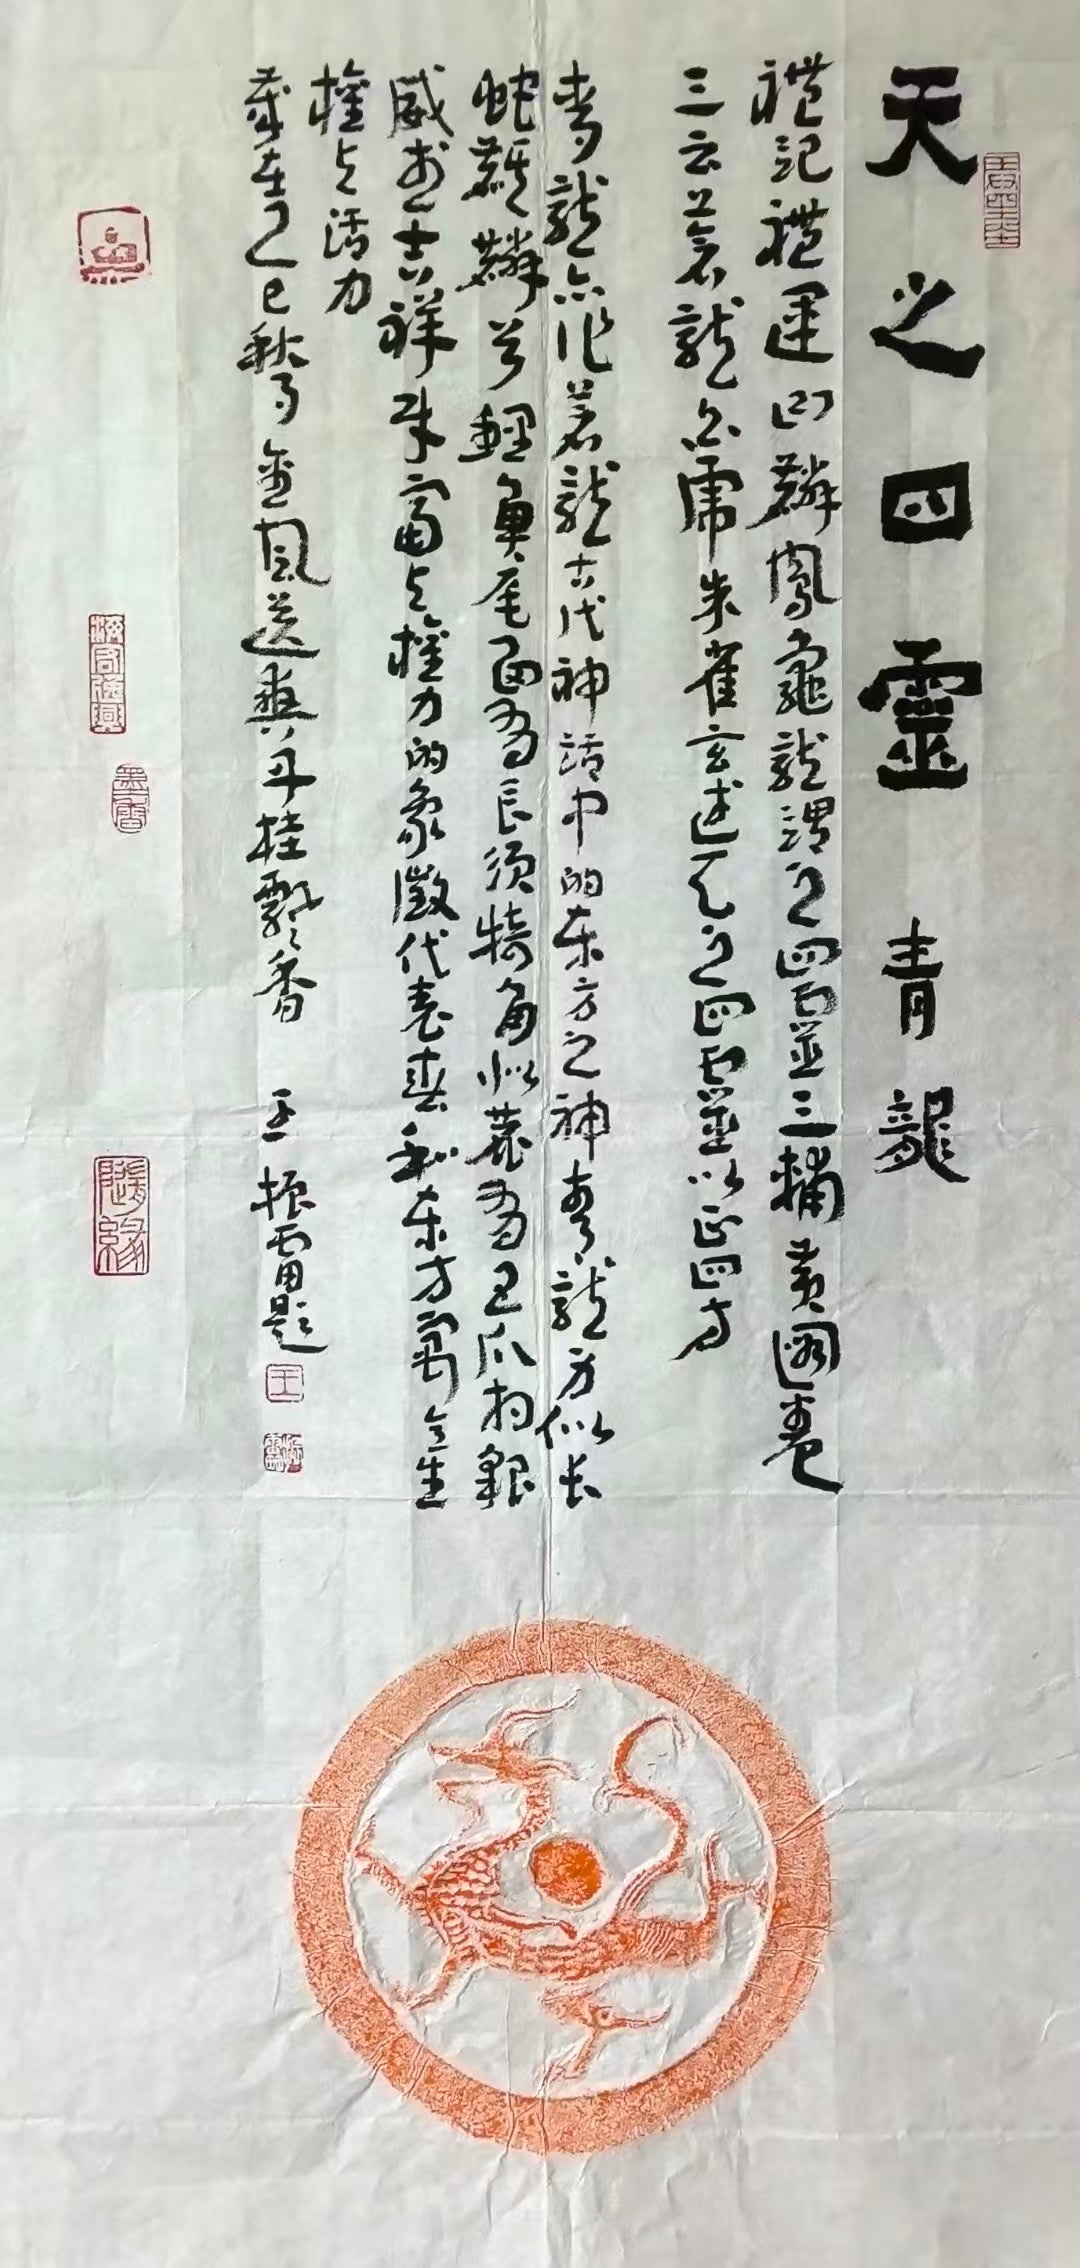 天之四靈 青龍
禮記禮運曰麟鳳龜龍謂之四靈三輔黃圖卷
三云蒼龍白虎朱雀玄武天之四靈以正四方
青龍亦作蒼龍古代神話中的东方之神青龍身似长
蛇麒麟首鯉魚尾面有長须犄角似鹿有五爪相貌
威武吉祥财富与權力的象徵代表春和东方寓含生
權与活力
歲在乙巳秋 金風送爽丹桂飄香 王振雷題
王
墨香
隨緣